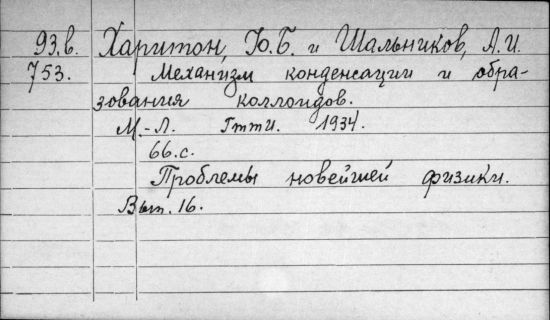 93.в. Харитон, Ю.Б. и Шальников, А.И.
753. Механизм конденсации и обра-
зования коллоидов.
М.-Л. Гтти. 1934.
66.с.
Проблемы новейшей физики.
Вып. 16.